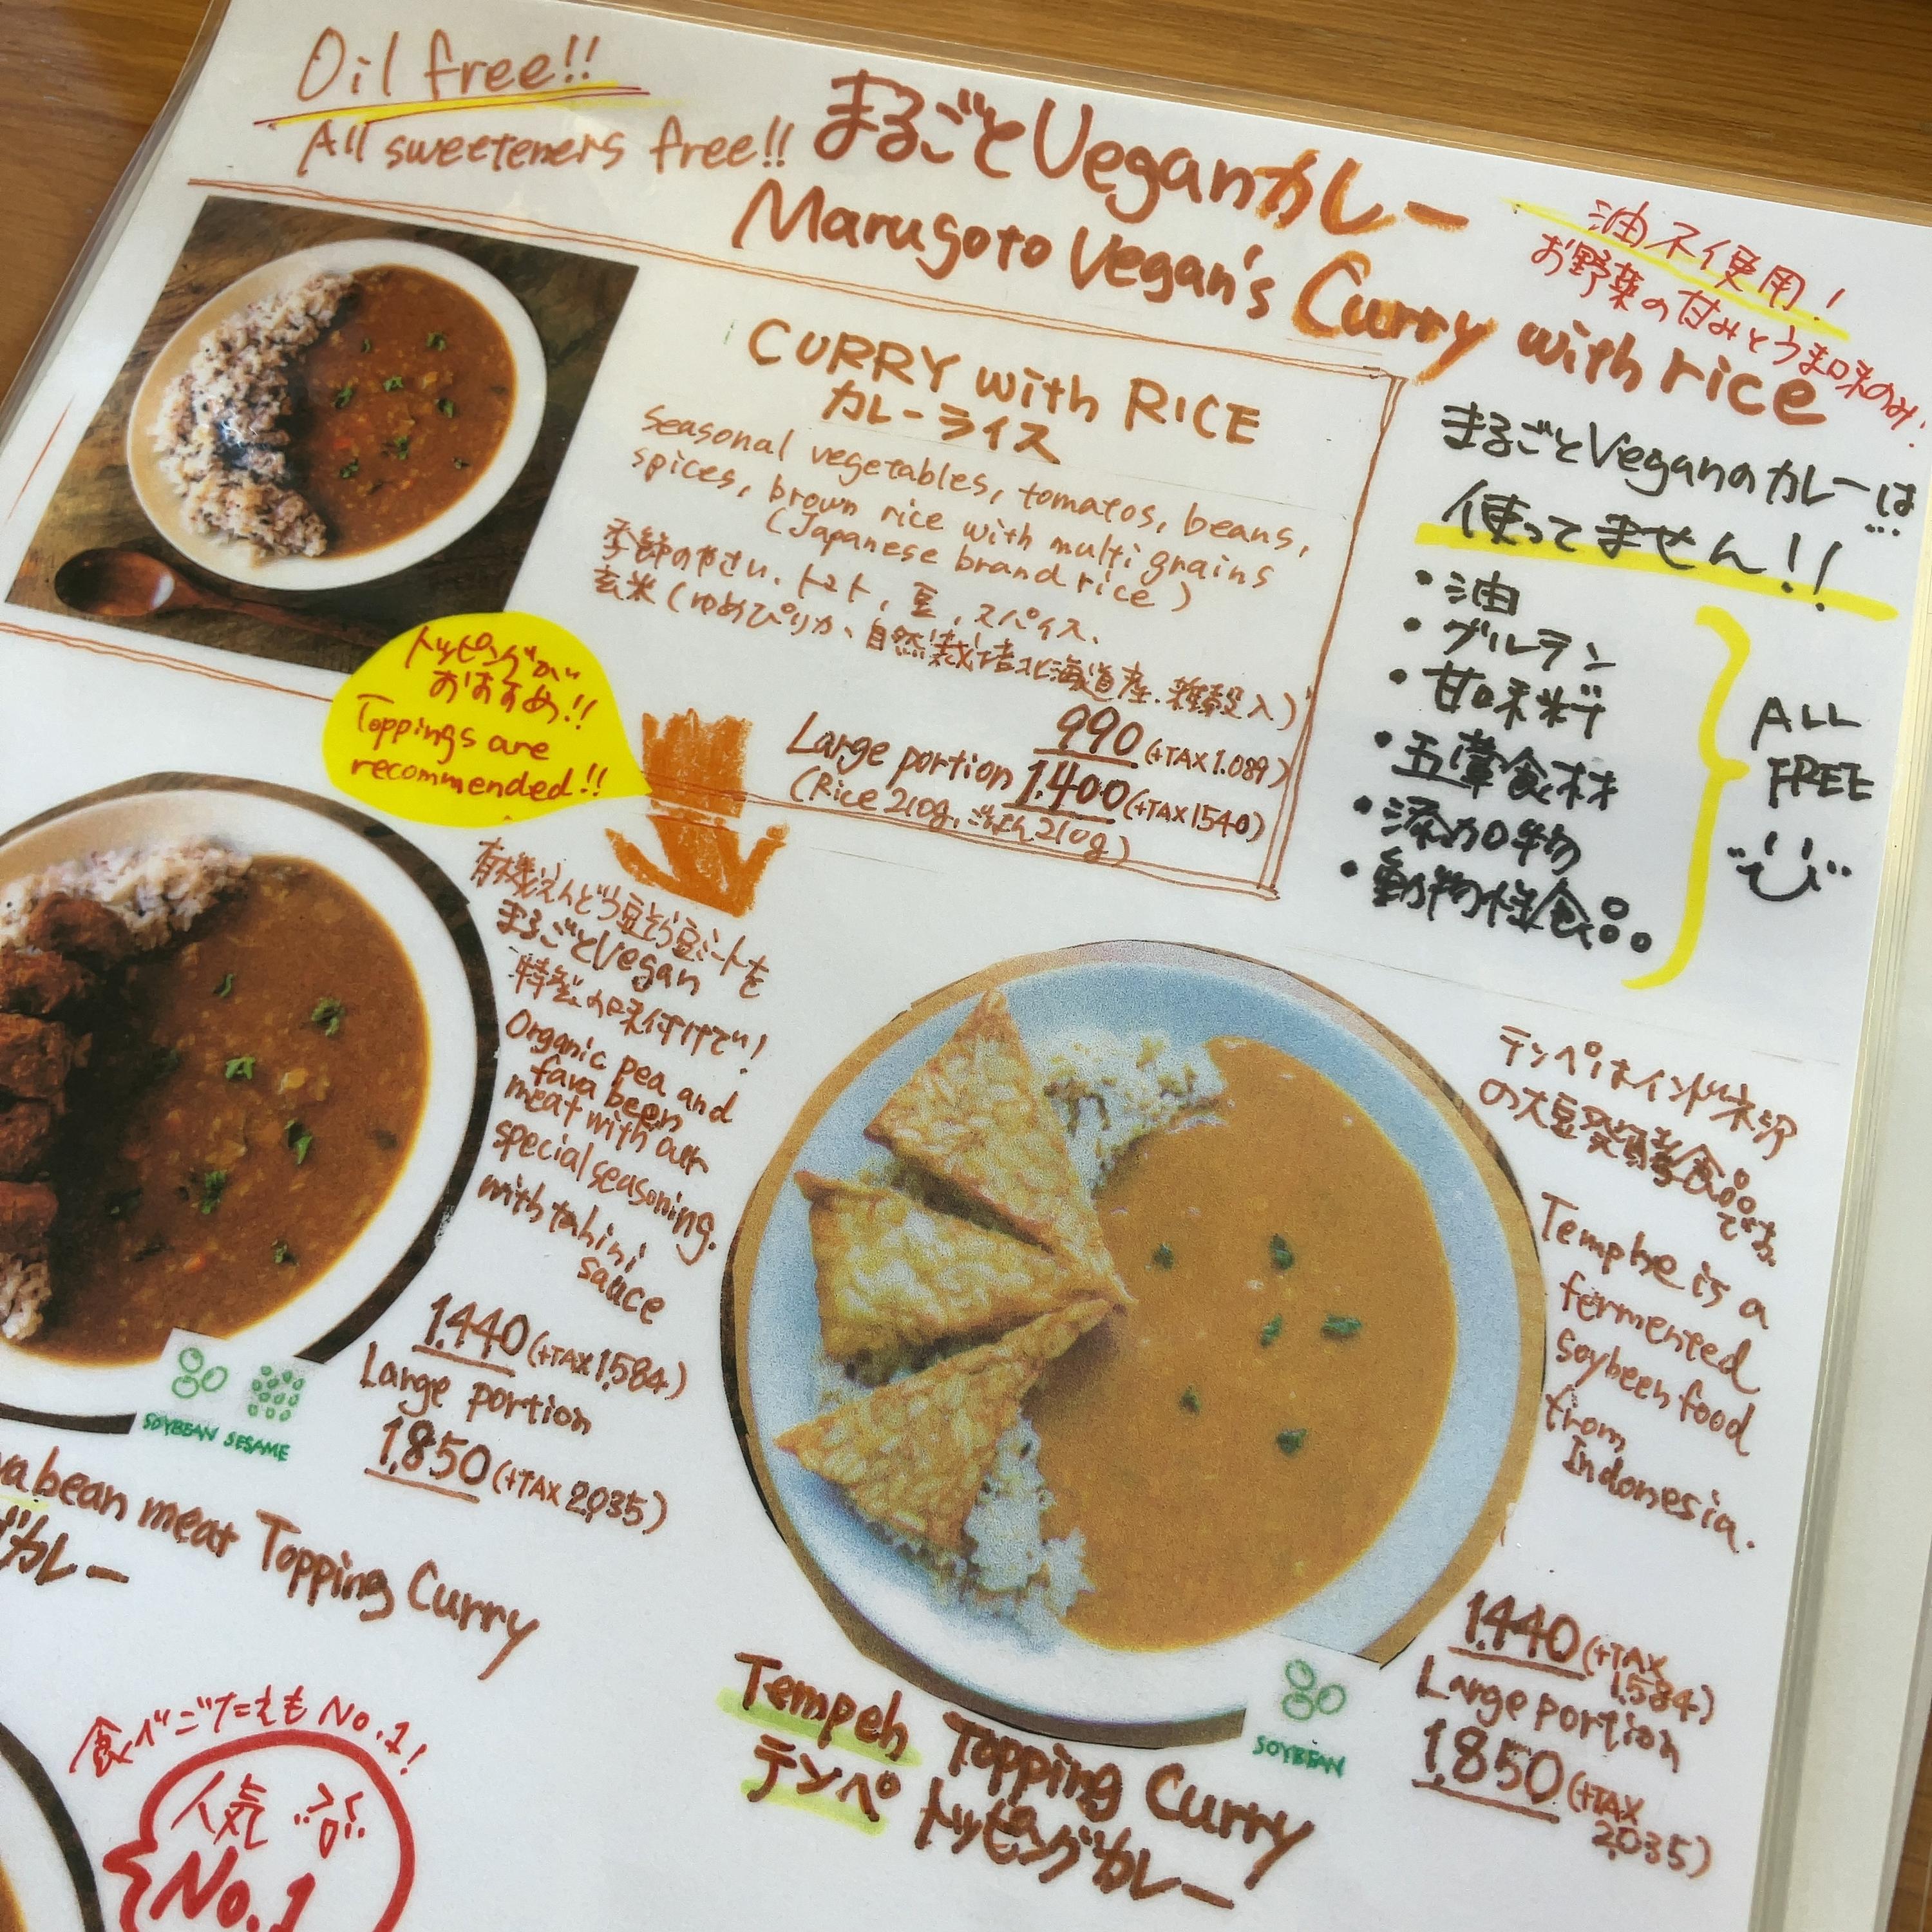 Oil free!!
All sweeteners free!!
まるごとVeganカレー
Marugoto Vegan's Curry with rice
油不使用!
お野菜の甘みとうま味のみ!
CURRY with RICE
カレーライス
seasonal vegetables, tomatos, beans,
spices, brown rice with multi grains
(Japanese brand rice)
季節のやさい、トマト、豆、スパイス、
玄米(ゆめぴりか、自然栽培北海道産.雑穀入)
990(+TAX1.089)
Large portion 1.400(+TAX1540)
(Rice 210g, ごはん210g)
まるごとVeganのカレーは
使ってません!!
・油
・グルテン
・甘味料
・五葷食材
・添加物
・動物性食品
ALL
FREE
トッピングが
おすすめ!!
Toppings are
recommended!!
有機えんどう豆そら豆ミートを
まるごとVegan
特製の味付けで!
Organic pea and
fava been
meat with our
special seasoning.
with tahini
sauce
1.440(+TAX1,584)
Large portion
1,850(+TAX2,035)
SOYBEAN SESAME
abean meat Topping Curry
グカレー
テンペはインドネシア
の大豆発酵食品です。
Temphe is a
fermented
soybeen food
from
Indonesia.
1.440(+TAX
1.584)
Large portion
1.850(+TAX
2,035)
SOYBEAN
Tempeh Topping Curry
テンペ トッピングカレー
食べごたえもNo.1!
人気
No.1